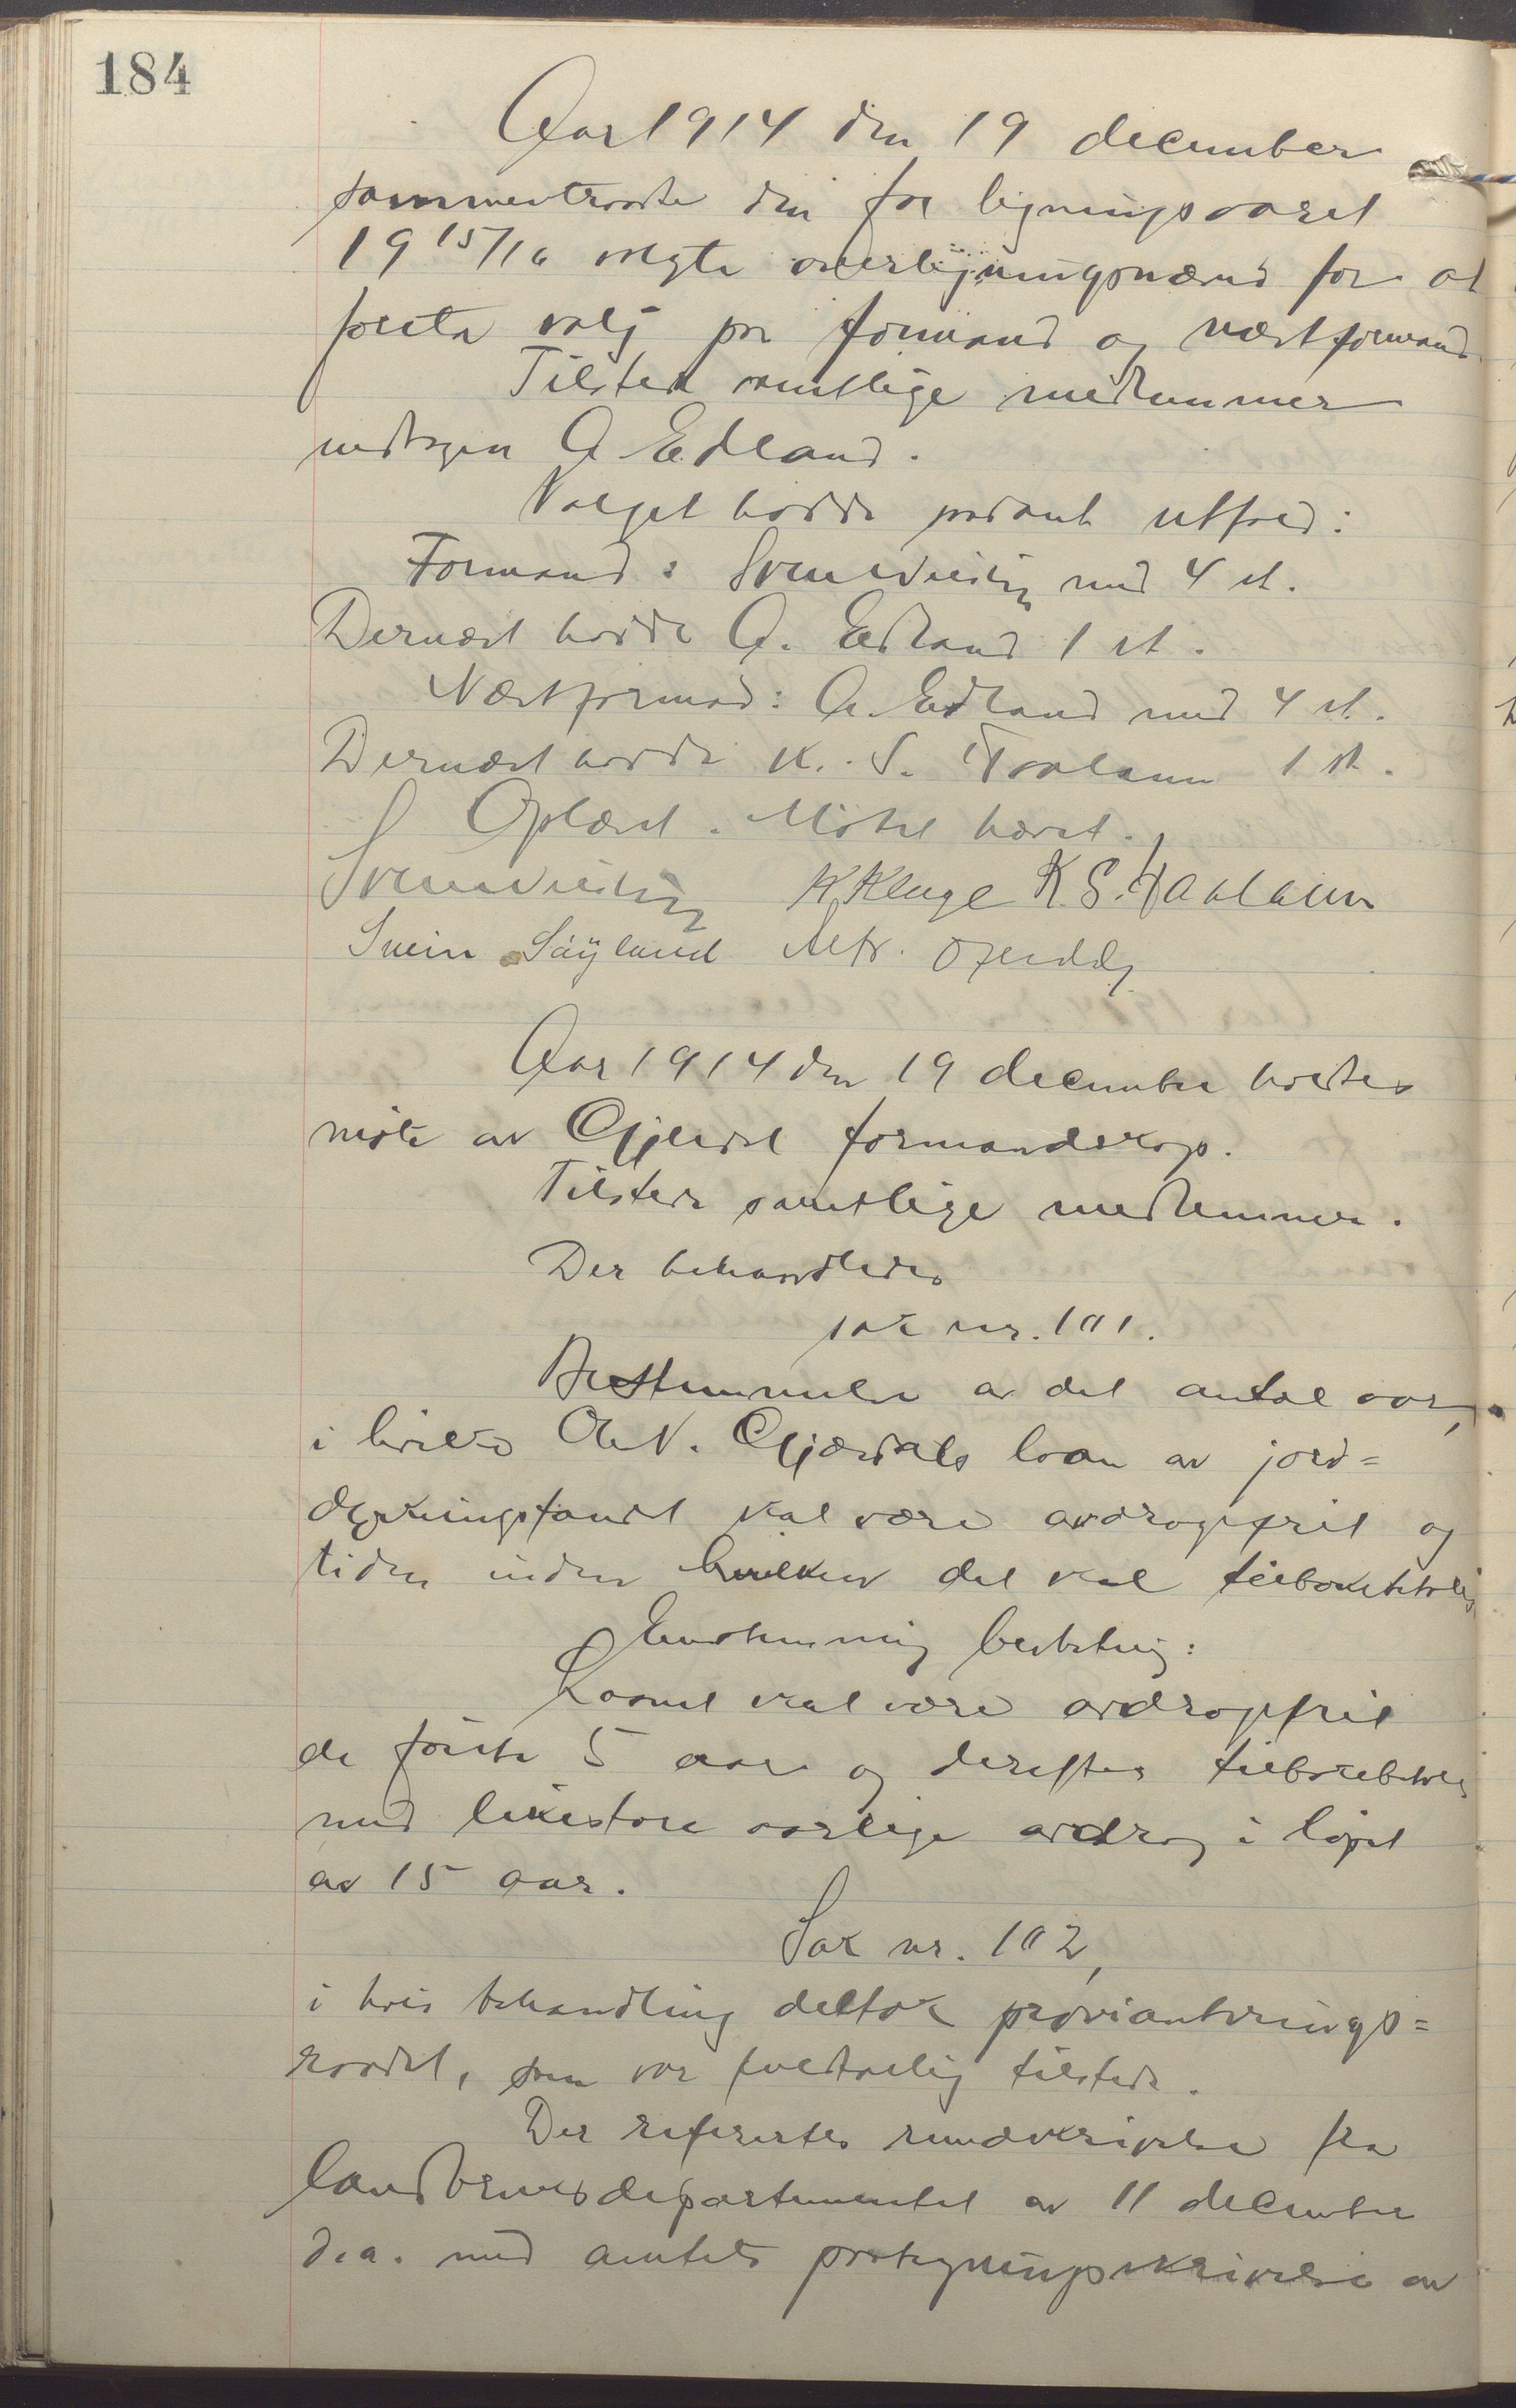 184
Aar 1914 den 19 december
sammentraadte den for ligningsaaret
19 15/16 valgte overligningsnævnd for at
foreta valg paa formand og næstformand.
Tilstede samtlige medlemmer
undtagen A Edland.
Valget hadde saadant utfald:
Formand: med 4 st.
Dernæst hadde A. Edland 1 st.
Næstformand: A. Edland med 4 st.
Dernæst hadde K. S. 1 st.
Oplæst. Møtet hævet.
K Kluge K. S.
Svein Søyland
Aar 1914 den 19 december holdtes
møte av Gjesdal formandskap.
Tilstede samtlige medlemmer.
Der behandledes
sak nr. 101.
Bestemmelse av det antal aar,
i hvilke Ole N. Gjesdals laan av jord=
dyrkningsfondet skal være avdragsfrit og
tiden inden hvilken det skal tilbakebetales
Enstemmig beslutning:
Laanet skal være avdragsfrit
de første 5 aar og derefter tilbakebetales
med likestore aarlige avdrag i løpet
av 15 aar.
Sak nr. 102,
i hvis behandling deltok provianterings=
raadet, som var fuldtallig tilstede.
Der refertes rundskrivelse fra
landbruksdepartementet av 11 december
d.a. med amtets paategningsskrivelse av